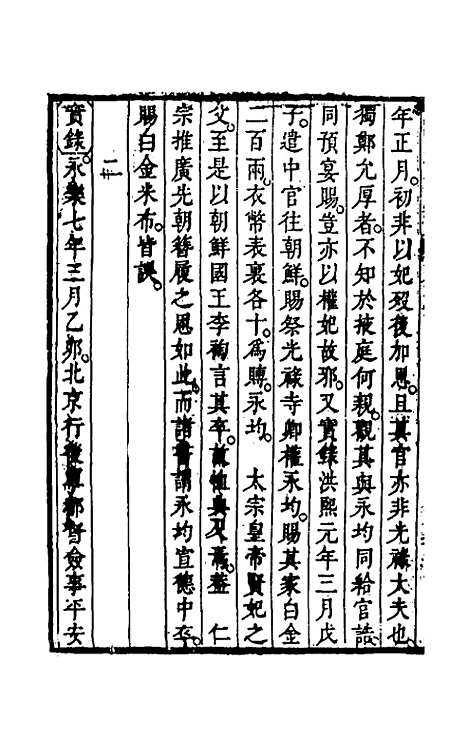 年正月。初非以妃歿後加恩。且其官亦非光祿大夫也。
獨鄭允厚者。不知於掖庭何親。觀其與永均同給官誥。
同預宴賜。豈亦以權妃故邪。又實錄洪熙元年三月戊
子。遣中官往朝鮮。賜祭光祿寺卿權永均。賜其家白金
二百兩。衣幣表裏各十。為賻。永均。 太宗皇帝賢妃之
父。至是以朝鮮國王李祹言其卒。故恤典及焉。蓋 仁
宗推廣先朝簪履之恩如此。而諸書謂永均宣德中卒。
賜白金米布。皆誤。
二
實錄。永樂七年三月乙卯。北京行後軍都督僉事平安